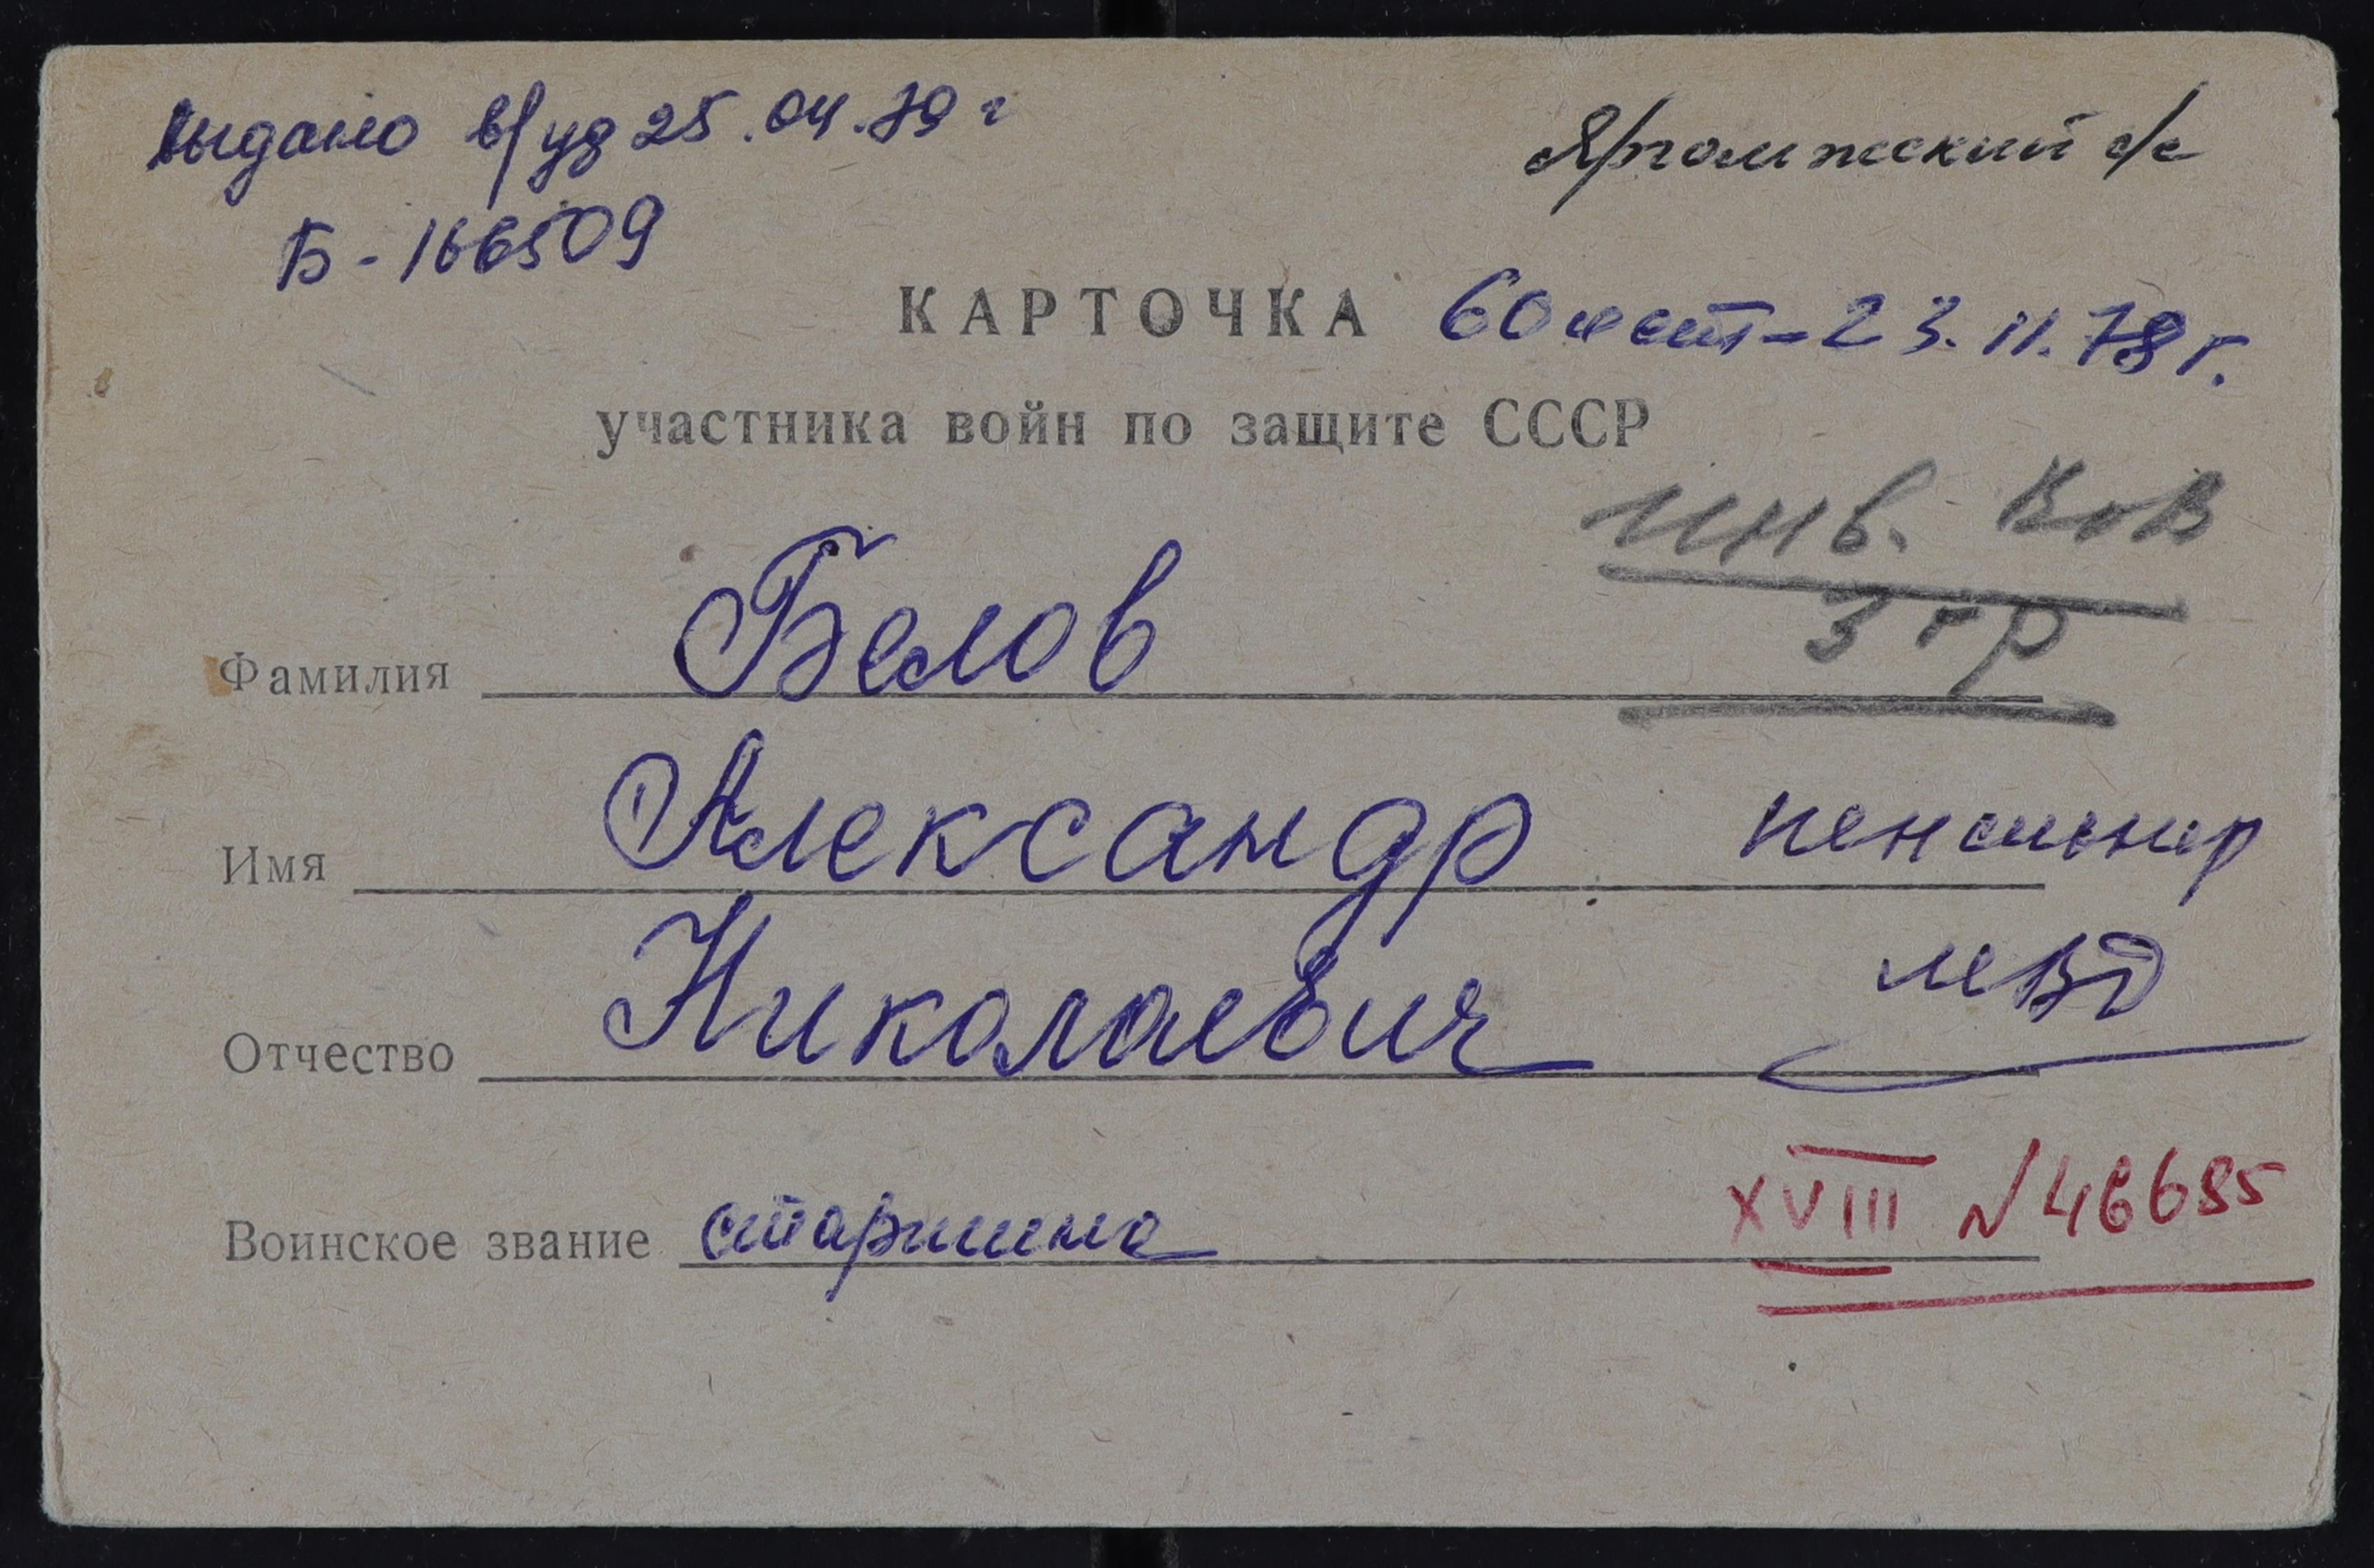 выдано в/уд 25.04.79 г
Яргомжский с/с
Б-166509
КАРТОЧКА 60 лет-23.11.78 г.
участника войн по защите СССР
инв. ВоВ
3 гр
Фамилия Белов
Имя Александр пенсионер
Отчество Николаевич МВД
Воинское звание старшина XVIII N 46685